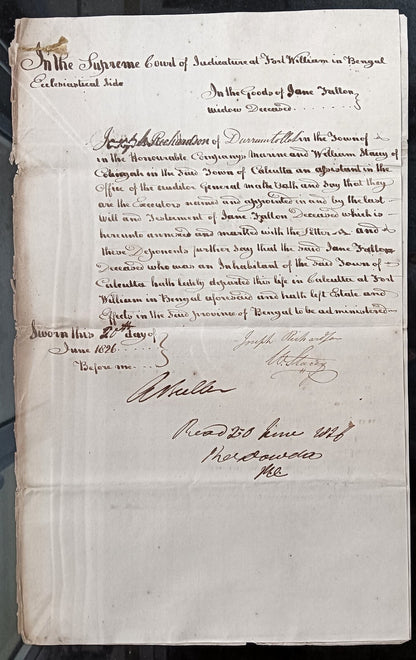 In the Supreme Court of Judicature at Fort William in Bengal
Ecclesiastical Side
In the Goods of Jane Fallon
Widow Deceased
Joseph Richardson of Durrumtollah in the Town of
in the Honourable Companys Marine and William Stacy of
in the said Town of Calcutta an assistant in the
Office of the Auditor General maketh Oath and say that they
are the Executors named and appointed in and by the last
Will and Testament of Jane Fallon Deceased which is
hereunto annexed and marked with the Letter A and
these Deponents further say that the said Jane Fallon
Deceased who was an Inhabitant of the said Town of
Calcutta hath lately departed this life in Calcutta at Fort
William in Bengal aforesaid and hath left Estate and
Effects in the said province of Bengal to be administered
Sworn this 20th day of
June 1826
Before me
Joseph Richardson
W. Stacy
Read 20 June 1826